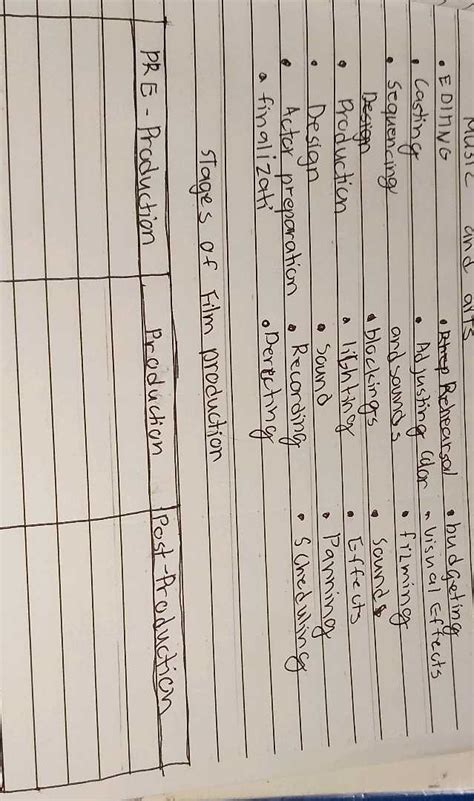 Music and arts
• EDITING • Rehearsal • budgeting
• Casting • Adjusting Color • visual Effects
• Sequencing and sounds • firming
Design • blockings • sounds
• Production • lighting • Effects
• Design • Sound • Panning
• Actor preparation • Recording • Scheduling
• finalizati • Derecting
Stages of Film production
PRE - Production Production Post-Production